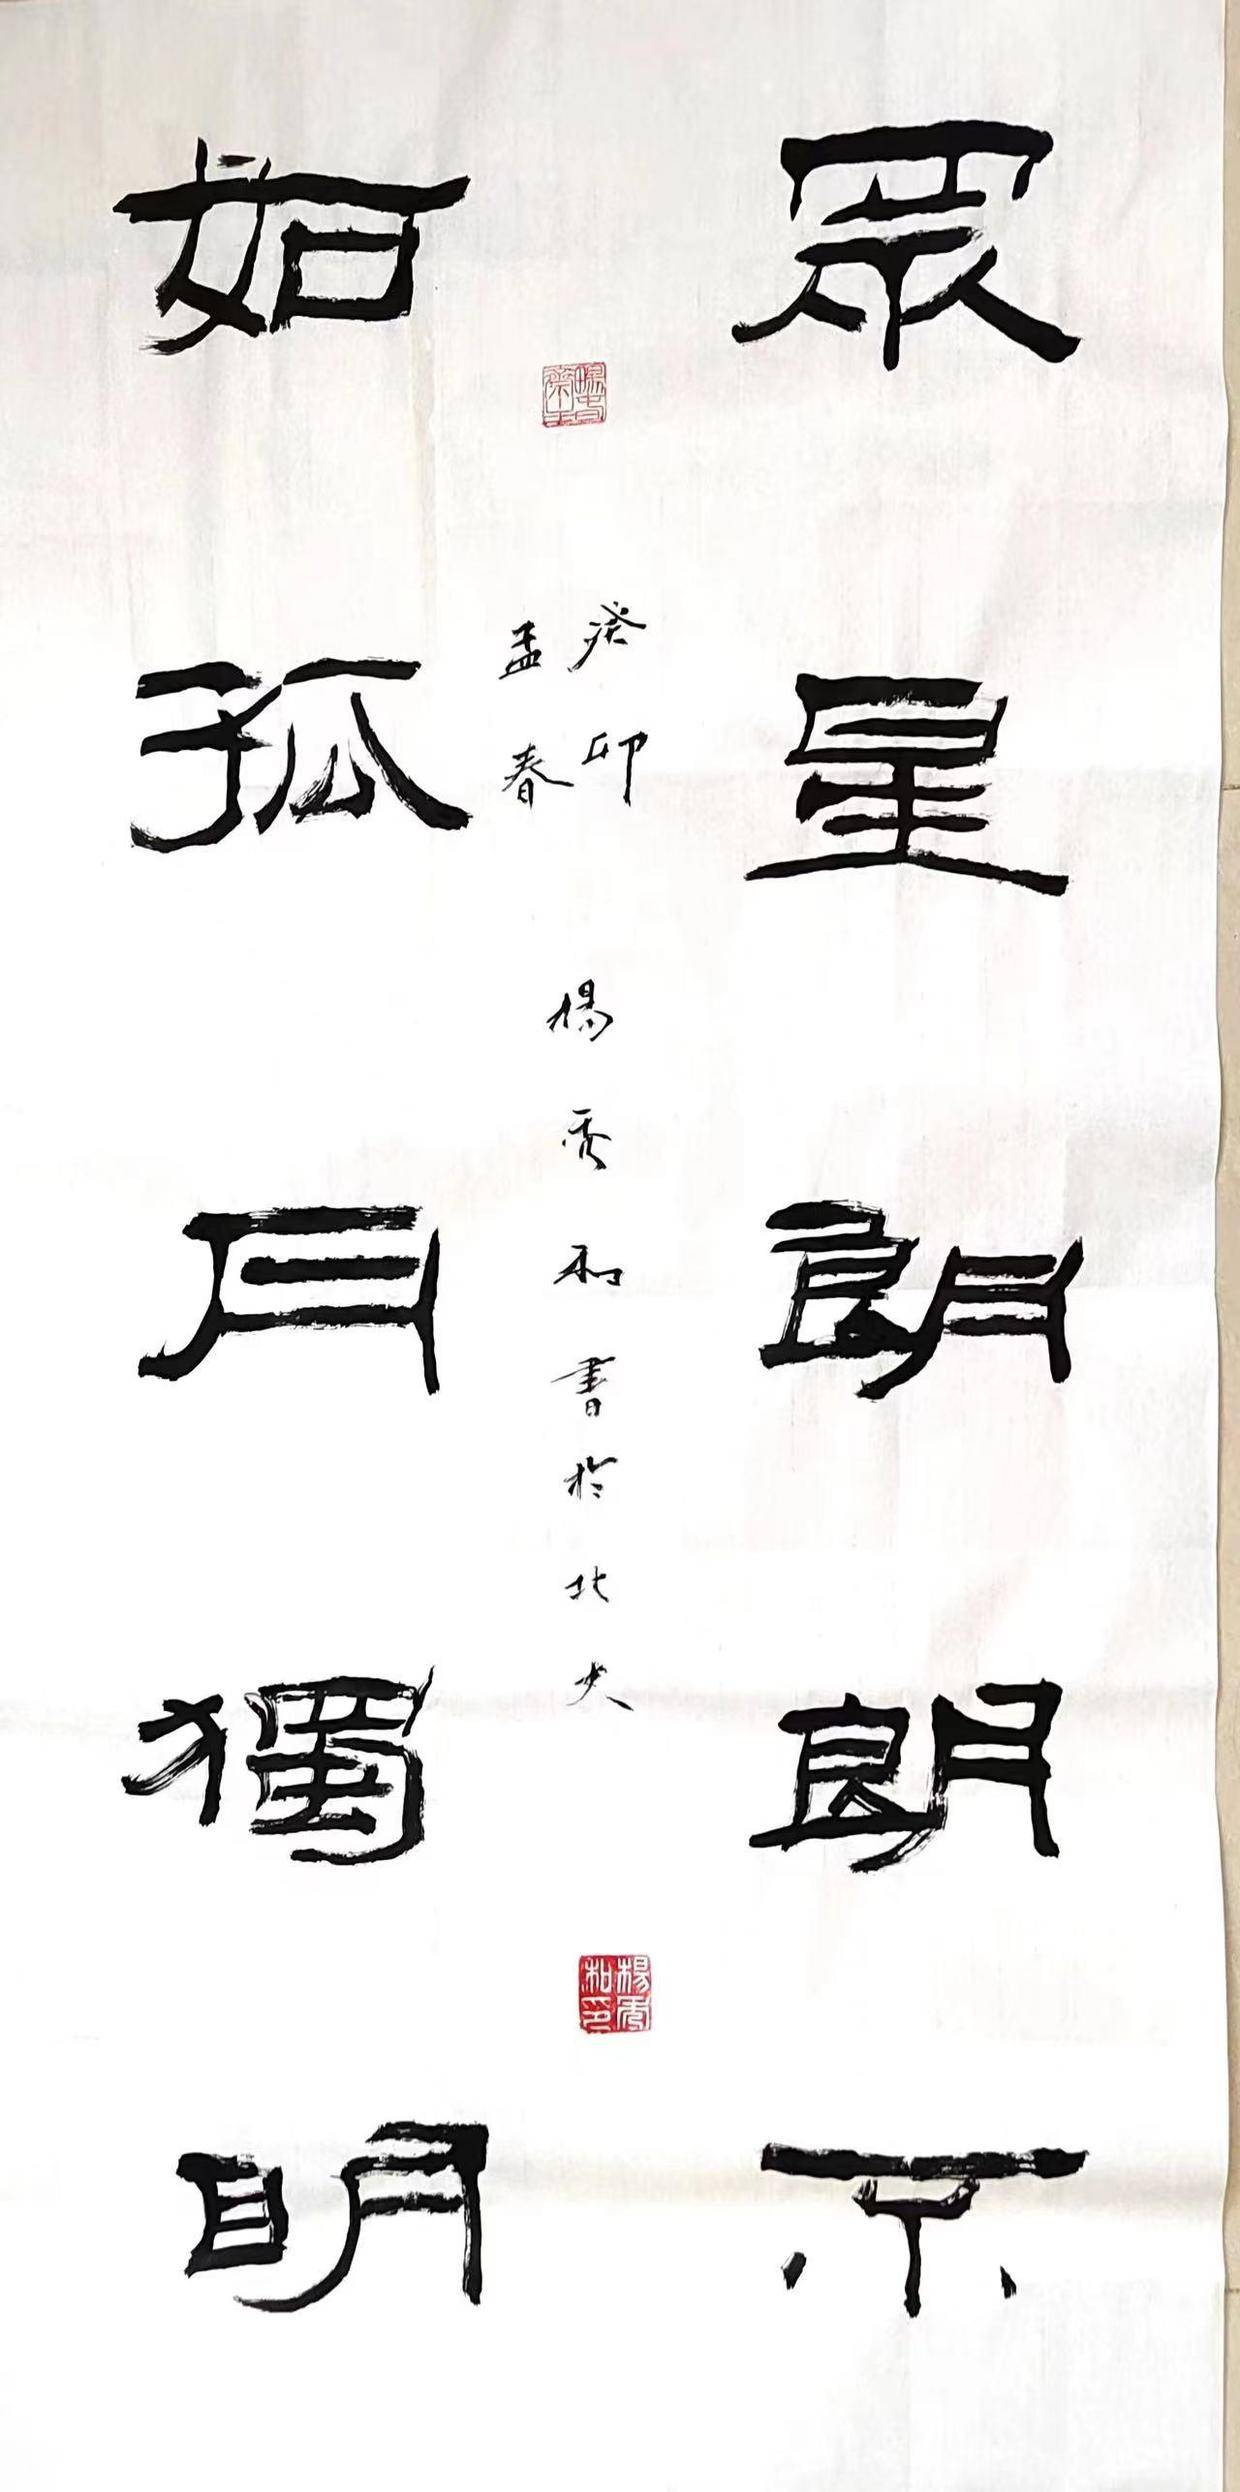 眾星朗朗不
如孤月獨明
癸卯
孟春
楊秀和書於北大
楊秀和印